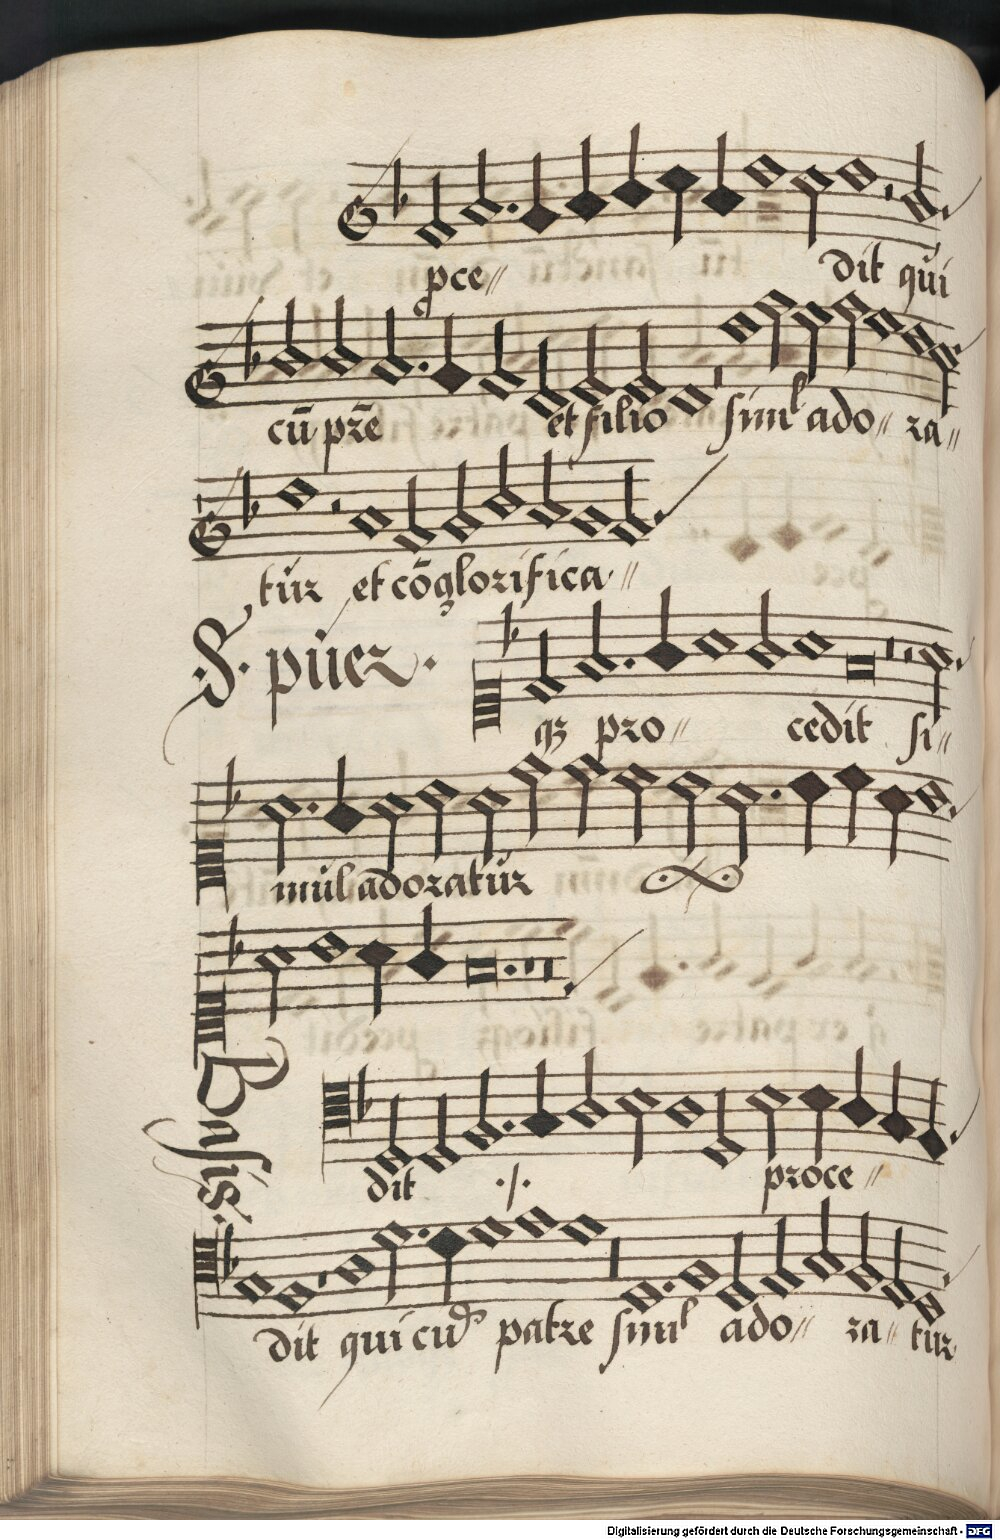 pce- dit qui
cū pr̄e et filio simł ado- ra-
tur et cōglorifica-
S. puer.
qȝ pro- cedit si-
mul adoratur
Baſis.
dit ·/· proce-
dit qui cū patre simł ado- ra- tur
Digitalisierung gefördert durch die Deutsche Forschungsgemeinschaft - DFG